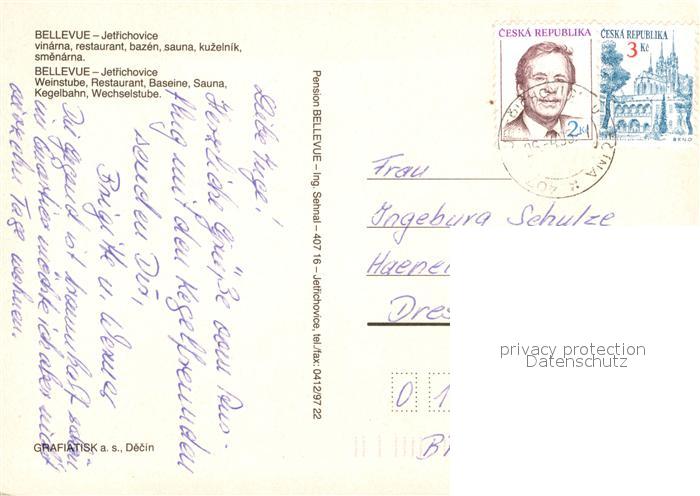 BELLEVUE – Jetřichovice
vinárna, restaurant, bazén, sauna, kuželník,
směnárna.
BELLEVUE – Jetřichovice
Weinstube, Restaurant, Baseine, Sauna,
Kegelbahn, Wechselstube.
Liebe Inge!
Herzliche Grüße vom Aus-
flug mit den Kegelfreunden
senden Dir,
Brigitte u. Werner
Die Gegend ist traumhaft schön
im Quartier möchte ich aber nicht
Tage wohnen.
GRAFIATISK a. s., Děčín
Pension BELLEVUE – Ing. Sehnal – 407 16 – Jetřichovice, tel./fax: 0412/97 22
ČESKÁ REPUBLIKA
2 Kč
ČESKÁ REPUBLIKA
3 Kč
BRNO
Frau
Ingeburg Schulze
Haene
Dres
0 1
privacy protection
Datenschutz